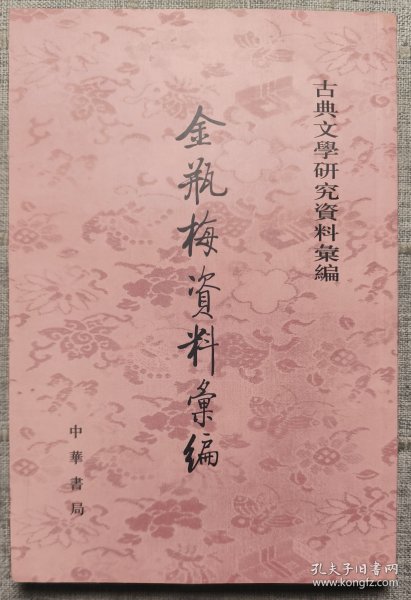 古典文學研究資料彙編
金瓶梅資料彙編
中華書局
孔夫子旧书网
www.kongfz.com